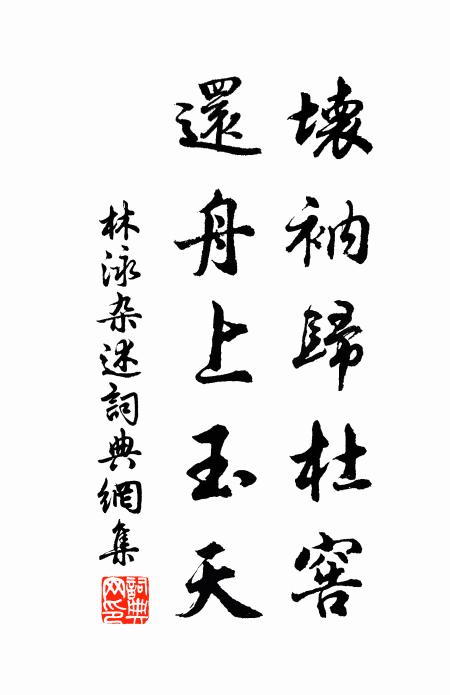 壞衲歸杜窖
還舟上玉天
林泳杂述詞典網集
詞典网印